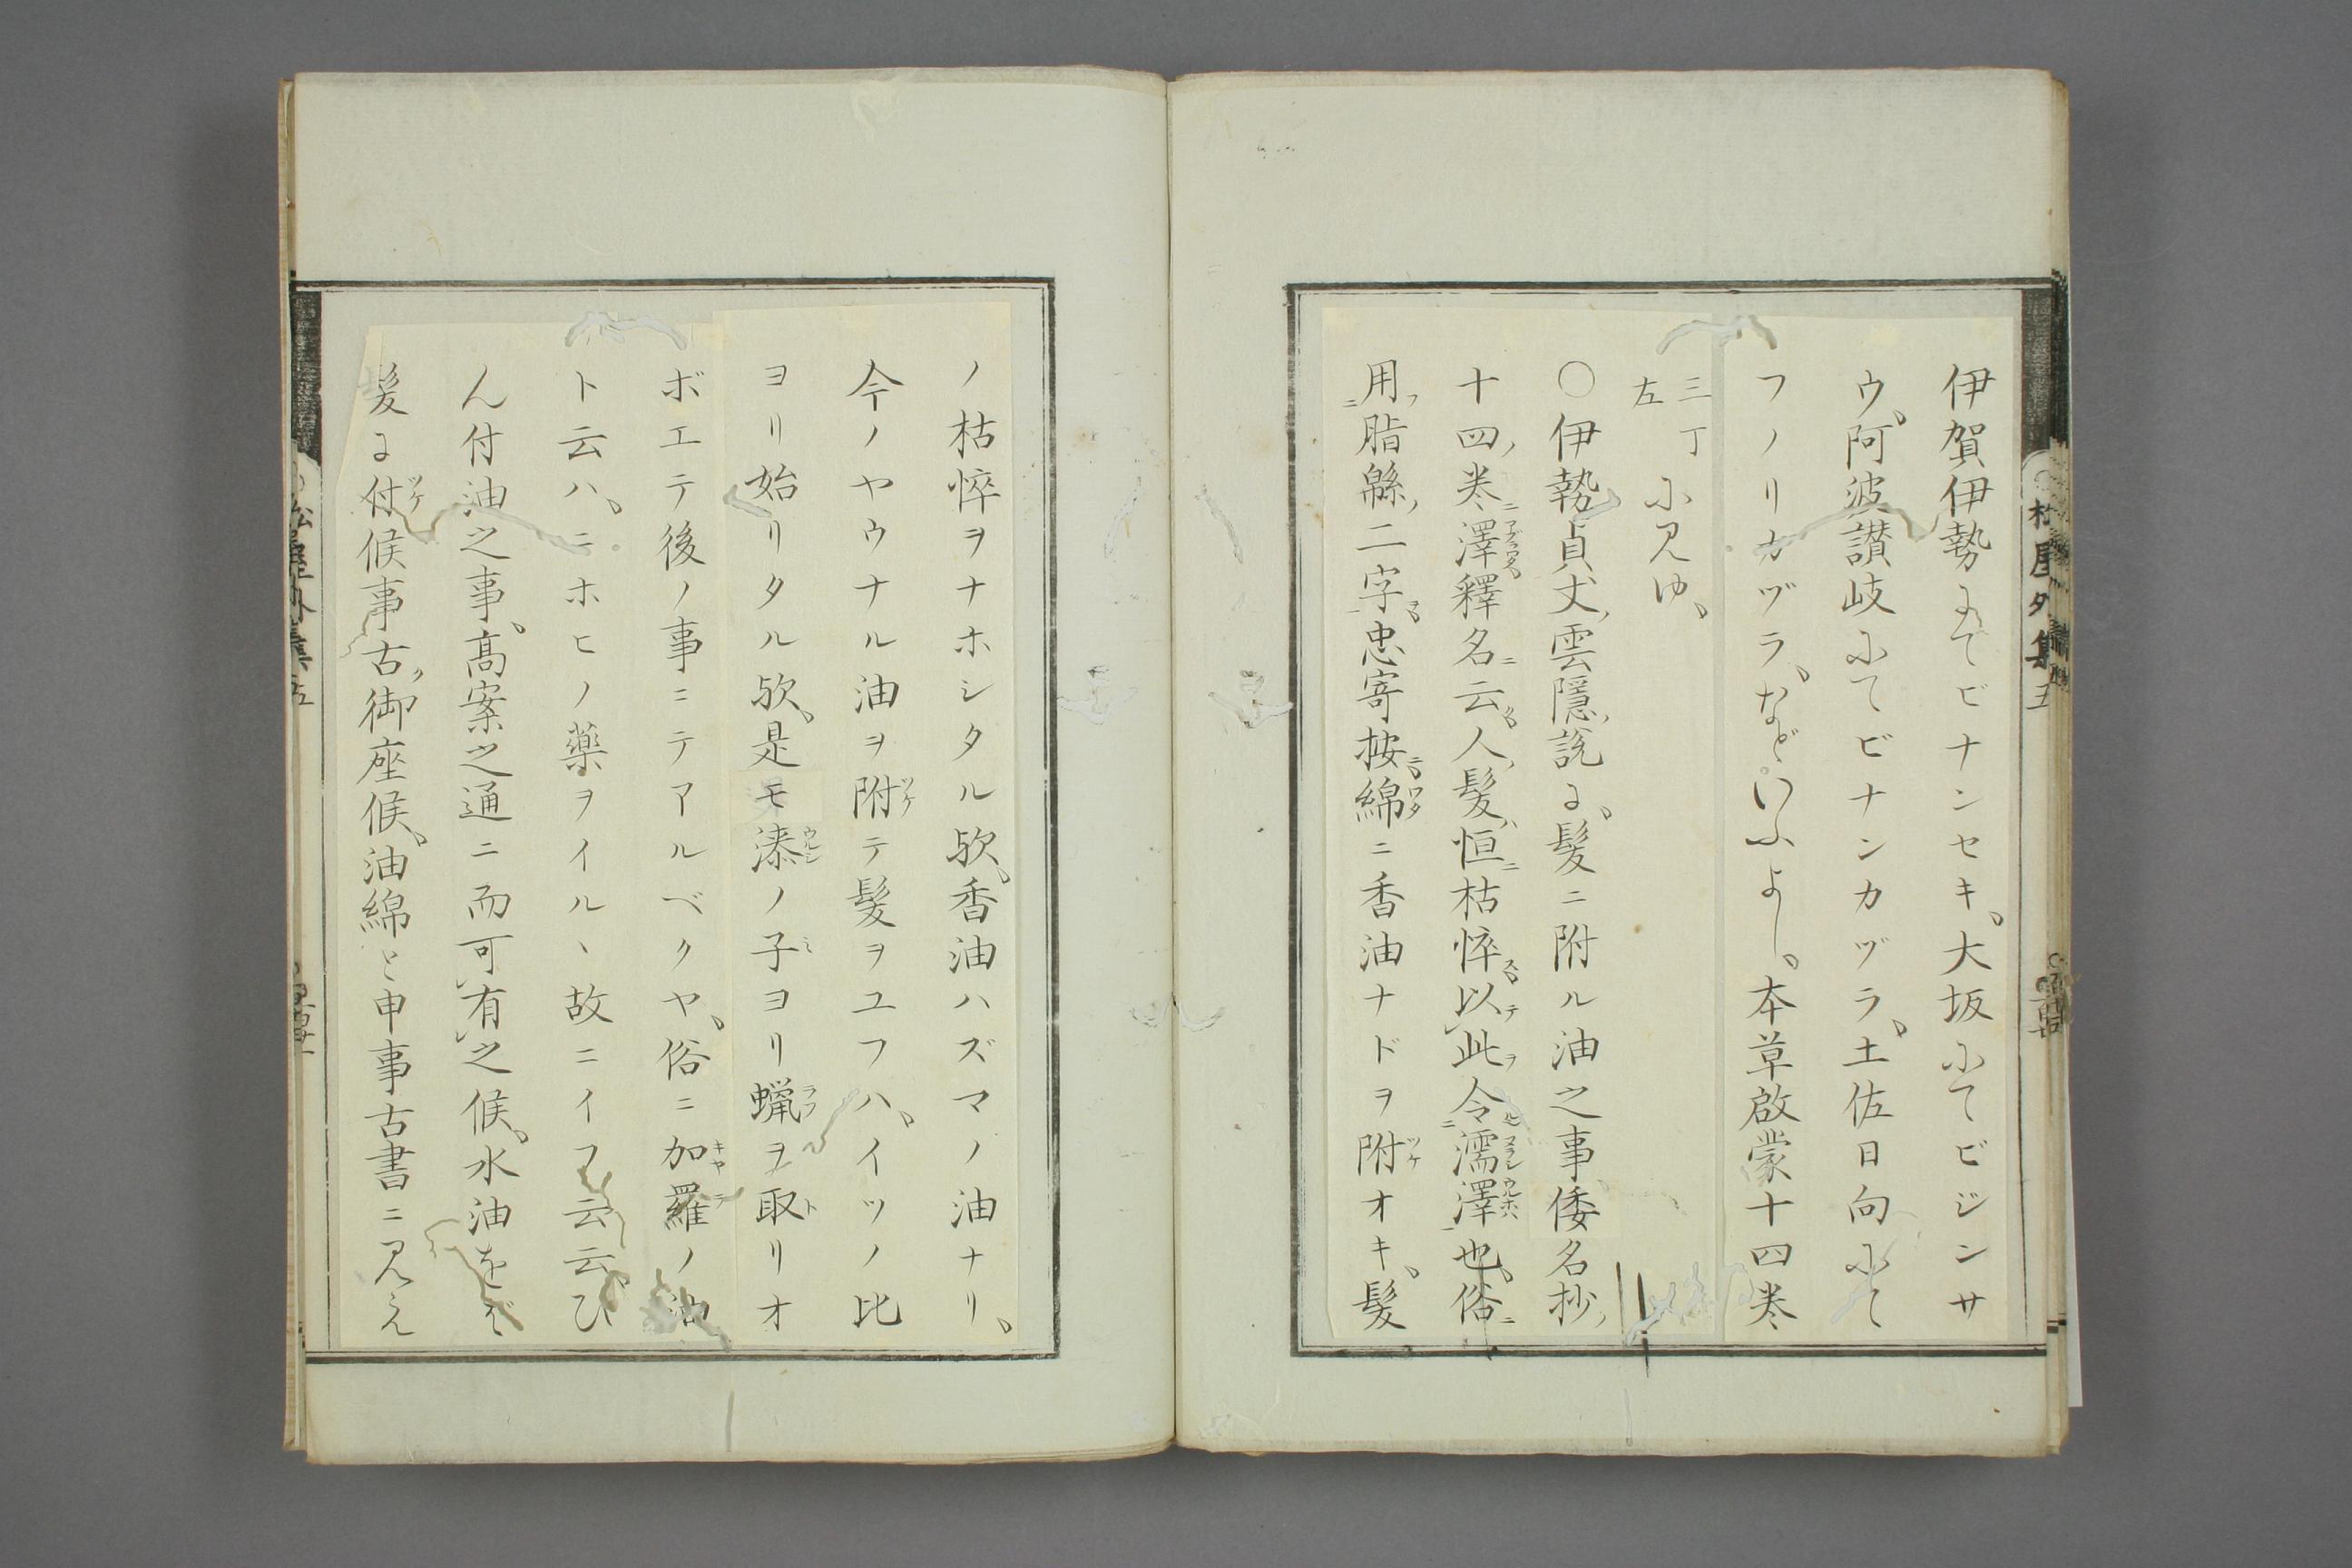 伊賀伊勢にてビナンセキ、大坂にてビジンサ
ウ、阿波讃岐にてビナンカヅラ、土佐日向にて
フノリカヅラ、などいふよし。本草啟蒙十四巻
三丁左に見ゆ、
○伊勢貞丈雲隱説に、髪ニ附ル油之事倭名抄
十四巻澤釋名云人髪恒枯悴以此令濡澤也、俗
用脂緜二字忠寄按綿ニ香油ナドヲ附オキ、髪
ノ枯悴ヲナホシタル欤、香油ハズマノ油ナリ、
今ノヤウナル油ヲ附テ髪ヲユフハ、イツノ比
ヨリ始リタル欤、是モ漆ノ子ヨリ蝋ヲ取リオ
ボエテ後ノ事ニテアルベクヤ、俗ニ加羅ノ油
ト云ハ、ニホヒノ藥ヲイルヽ故ニイフ云云、び
ん付油之事、高案之通ニ而可有之候、水油をば
髪に付候事古御座候、油綿と申事古書ニ見え
松屋外集五